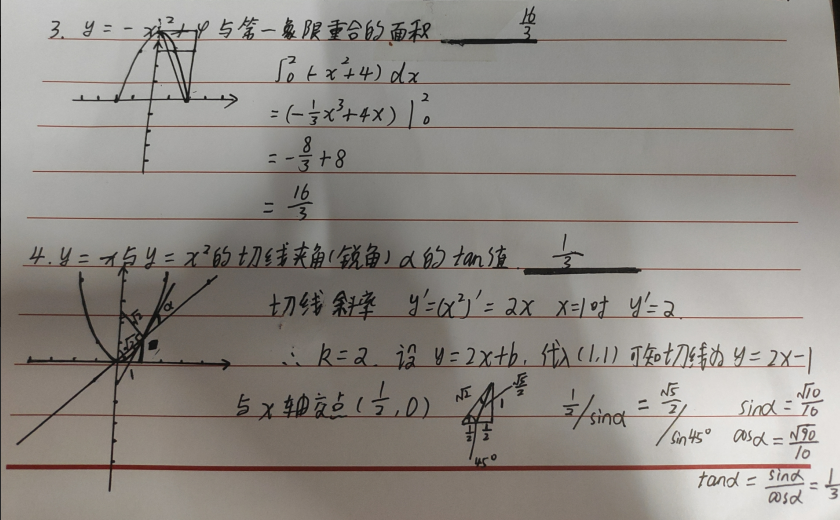 3. y = -x²+4 与第一象限重合的面积 16/3
∫₀² (-x²+4) dx
= (-1/3x³+4x) |₀²
= -8/3+8
= 16/3
4. y = x与y = x²的切线夹角(锐角) α的tan值. 1/3
切线斜率 y'=(x²)' = 2x x=1时 y'=2.
∴ k=2. 设 y=2x+b. 代入(1,1) 可知切线为 y=2x-1
与x轴交点(1/2,0) 1/2/sinα = √5/2/sin45° sinα=√10/10
cosα=√90/10
tanα = sinα/cosα = 1/3
α
√2
√2
1
√2
√5/2
1
1/2
1/2
45°